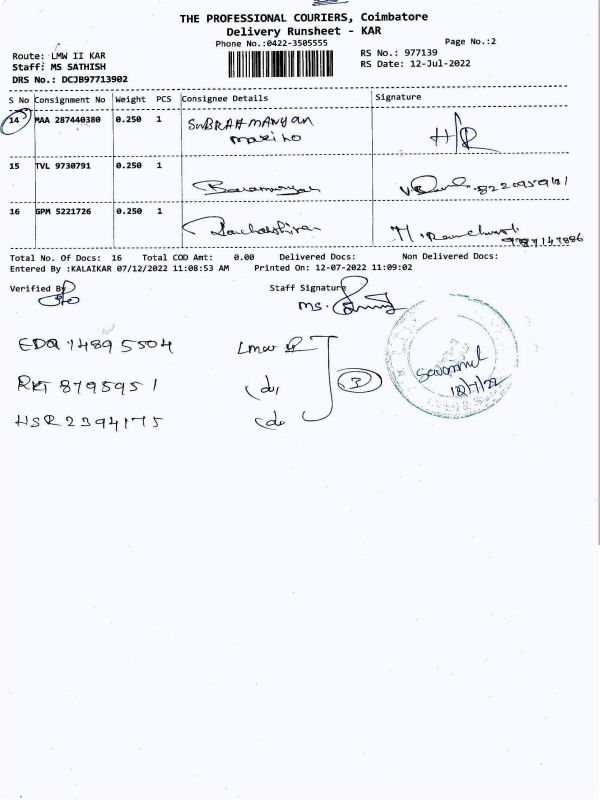 THE PROFESSIONAL COURIERS, Coimbatore
Delivery Runsheet - KAR
Phone No.:0422-3505555
Page No.:2
Route: LMW II KAR
Staff: MS SATHISH
DRS No.: DCJB97713902
RS No.: 977139
RS Date: 12-Jul-2022
S No Consignment No Weight PCS Consignee Details Signature
14 MAA 287440380 0.250 1 SUBRAHMANYAN
15 TVL 9730791 0.250 1
16 GPM 5221726 0.250 1
Total No. Of Docs: 16 Total COD Amt: 0.00 Delivered Docs: Non Delivered Docs:
Entered By :KALAIKAR 07/12/2022 11:08:53 AM Printed On: 12-07-2022 11:09:02
Verified By
Staff Signature
MS.
EDQ 14895504 Lmw
RKT 8795951 do
3
HSR2394175 do